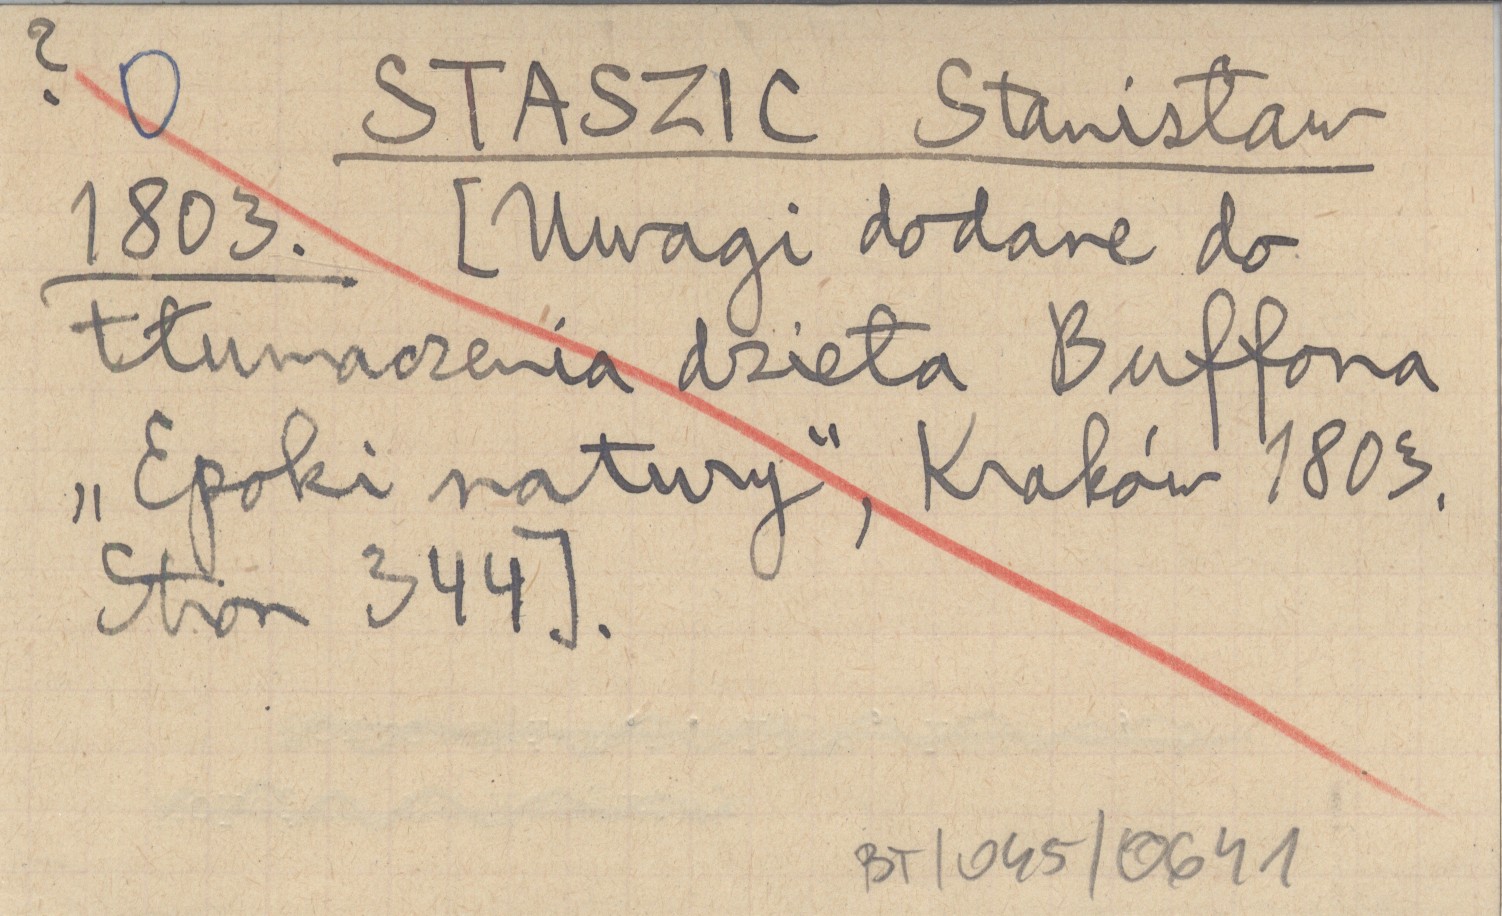 ? 0 STASZIC Stanisław
1803. [Uwagi dodane do
tłumaczenia dzieła Buffona
„Epoki natury", Kraków 1803.
Stron 344].
BT/045/0641